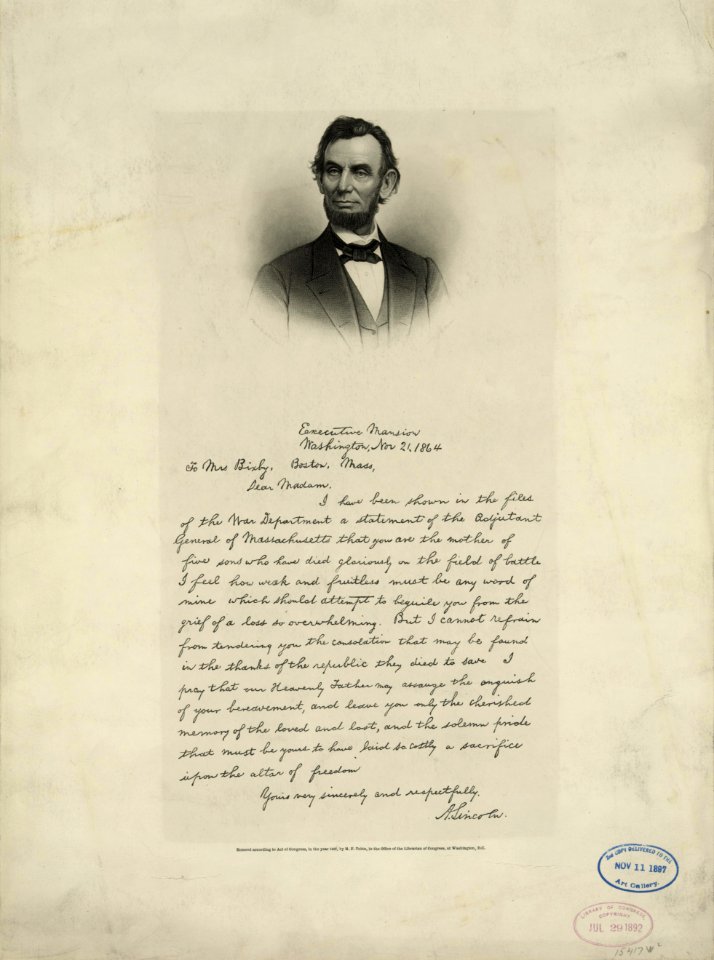 Executive Mansion
Washington, Nov 21, 1864
To Mrs Bixby, Boston, Mass,
Dear Madam,
I have been shown in the files
of the War Department a statement of the Adjutant
General of Massachusetts that you are the mother of
five sons who have died gloriously on the field of battle
I feel how weak and fruitless must be any word of
mine which should attempt to beguile you from the
grief of a loss so overwhelming. But I cannot refrain
from tendering you the consolation that may be found
in the thanks of the republic they died to save I
pray that our Heavenly Father may assuage the anguish
of your bereavement, and leave you only the cherished
memory of the loved and lost, and the solemn pride
that must be yours to have laid so costly a sacrifice
upon the altar of freedom
Yours very sincerely and respectfully.
A. Lincoln.
Entered according to Act of Congress, in the year by M. F. Tobin, in the Office of the Librarian of Congress, at Washington, D.C.
2nd COPY DELIVERED TO THE
NOV 11 1897
Art Gallery.
LIBRARY OF CONGRESS
COPYRIGHT
JUL 29 1892